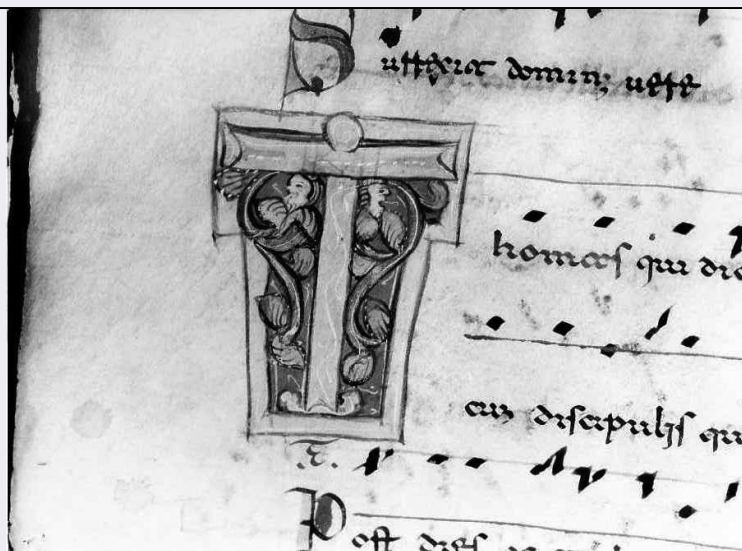 Surrexit dominus uere
Thomas qui dic
cum discipulis qui
A.
Post dies